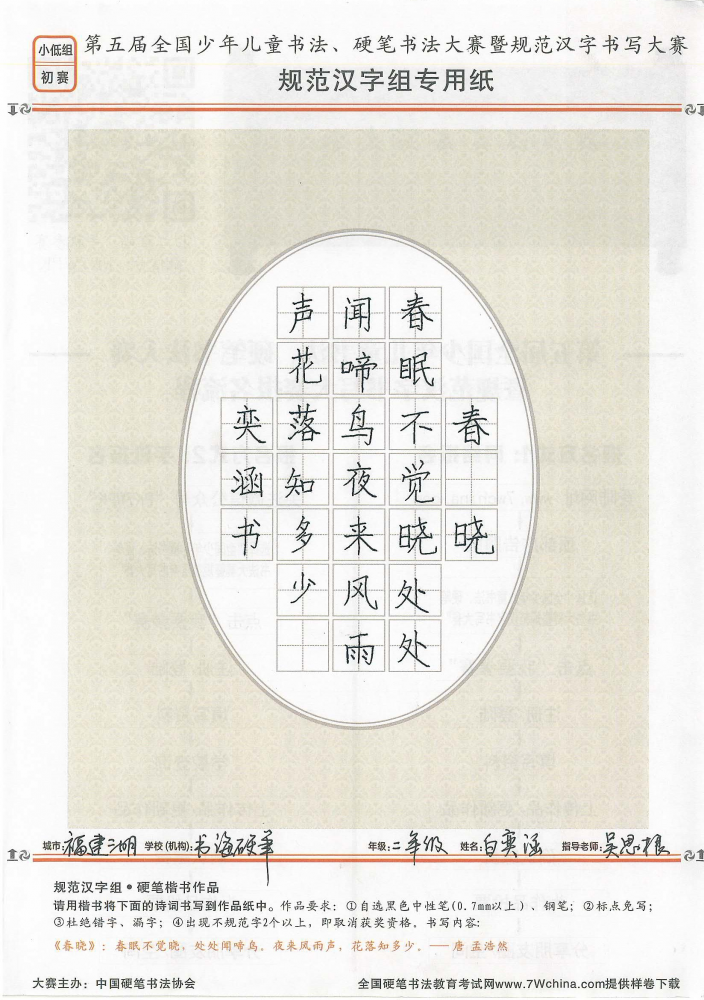 小低组
初赛
第五届全国少年儿童书法、硬笔书法大赛暨规范汉字书写大赛
规范汉字组专用纸
春晓
春眠不觉晓处处
闻啼鸟夜来风雨
声花落知多少
奕涵书
城市:福建湖 学校(机构):书海硬笔 年级:二年级 姓名:白奕涵 指导老师:吴思根
规范汉字组·硬笔楷书作品
请用楷书将下面的诗词书写到作品纸中。作品要求：①自选黑色中性笔(0.7mm以上)、钢笔；②标点免写；
③杜绝错字、漏字；④出现不规范字2个以上，即取消获奖资格。书写内容：
《春晓》：春眠不觉晓，处处闻啼鸟。夜来风雨声，花落知多少。——唐 孟浩然
大赛主办：中国硬笔书法协会
全国硬笔书法教育考试网www.7Wchina.com提供样卷下载